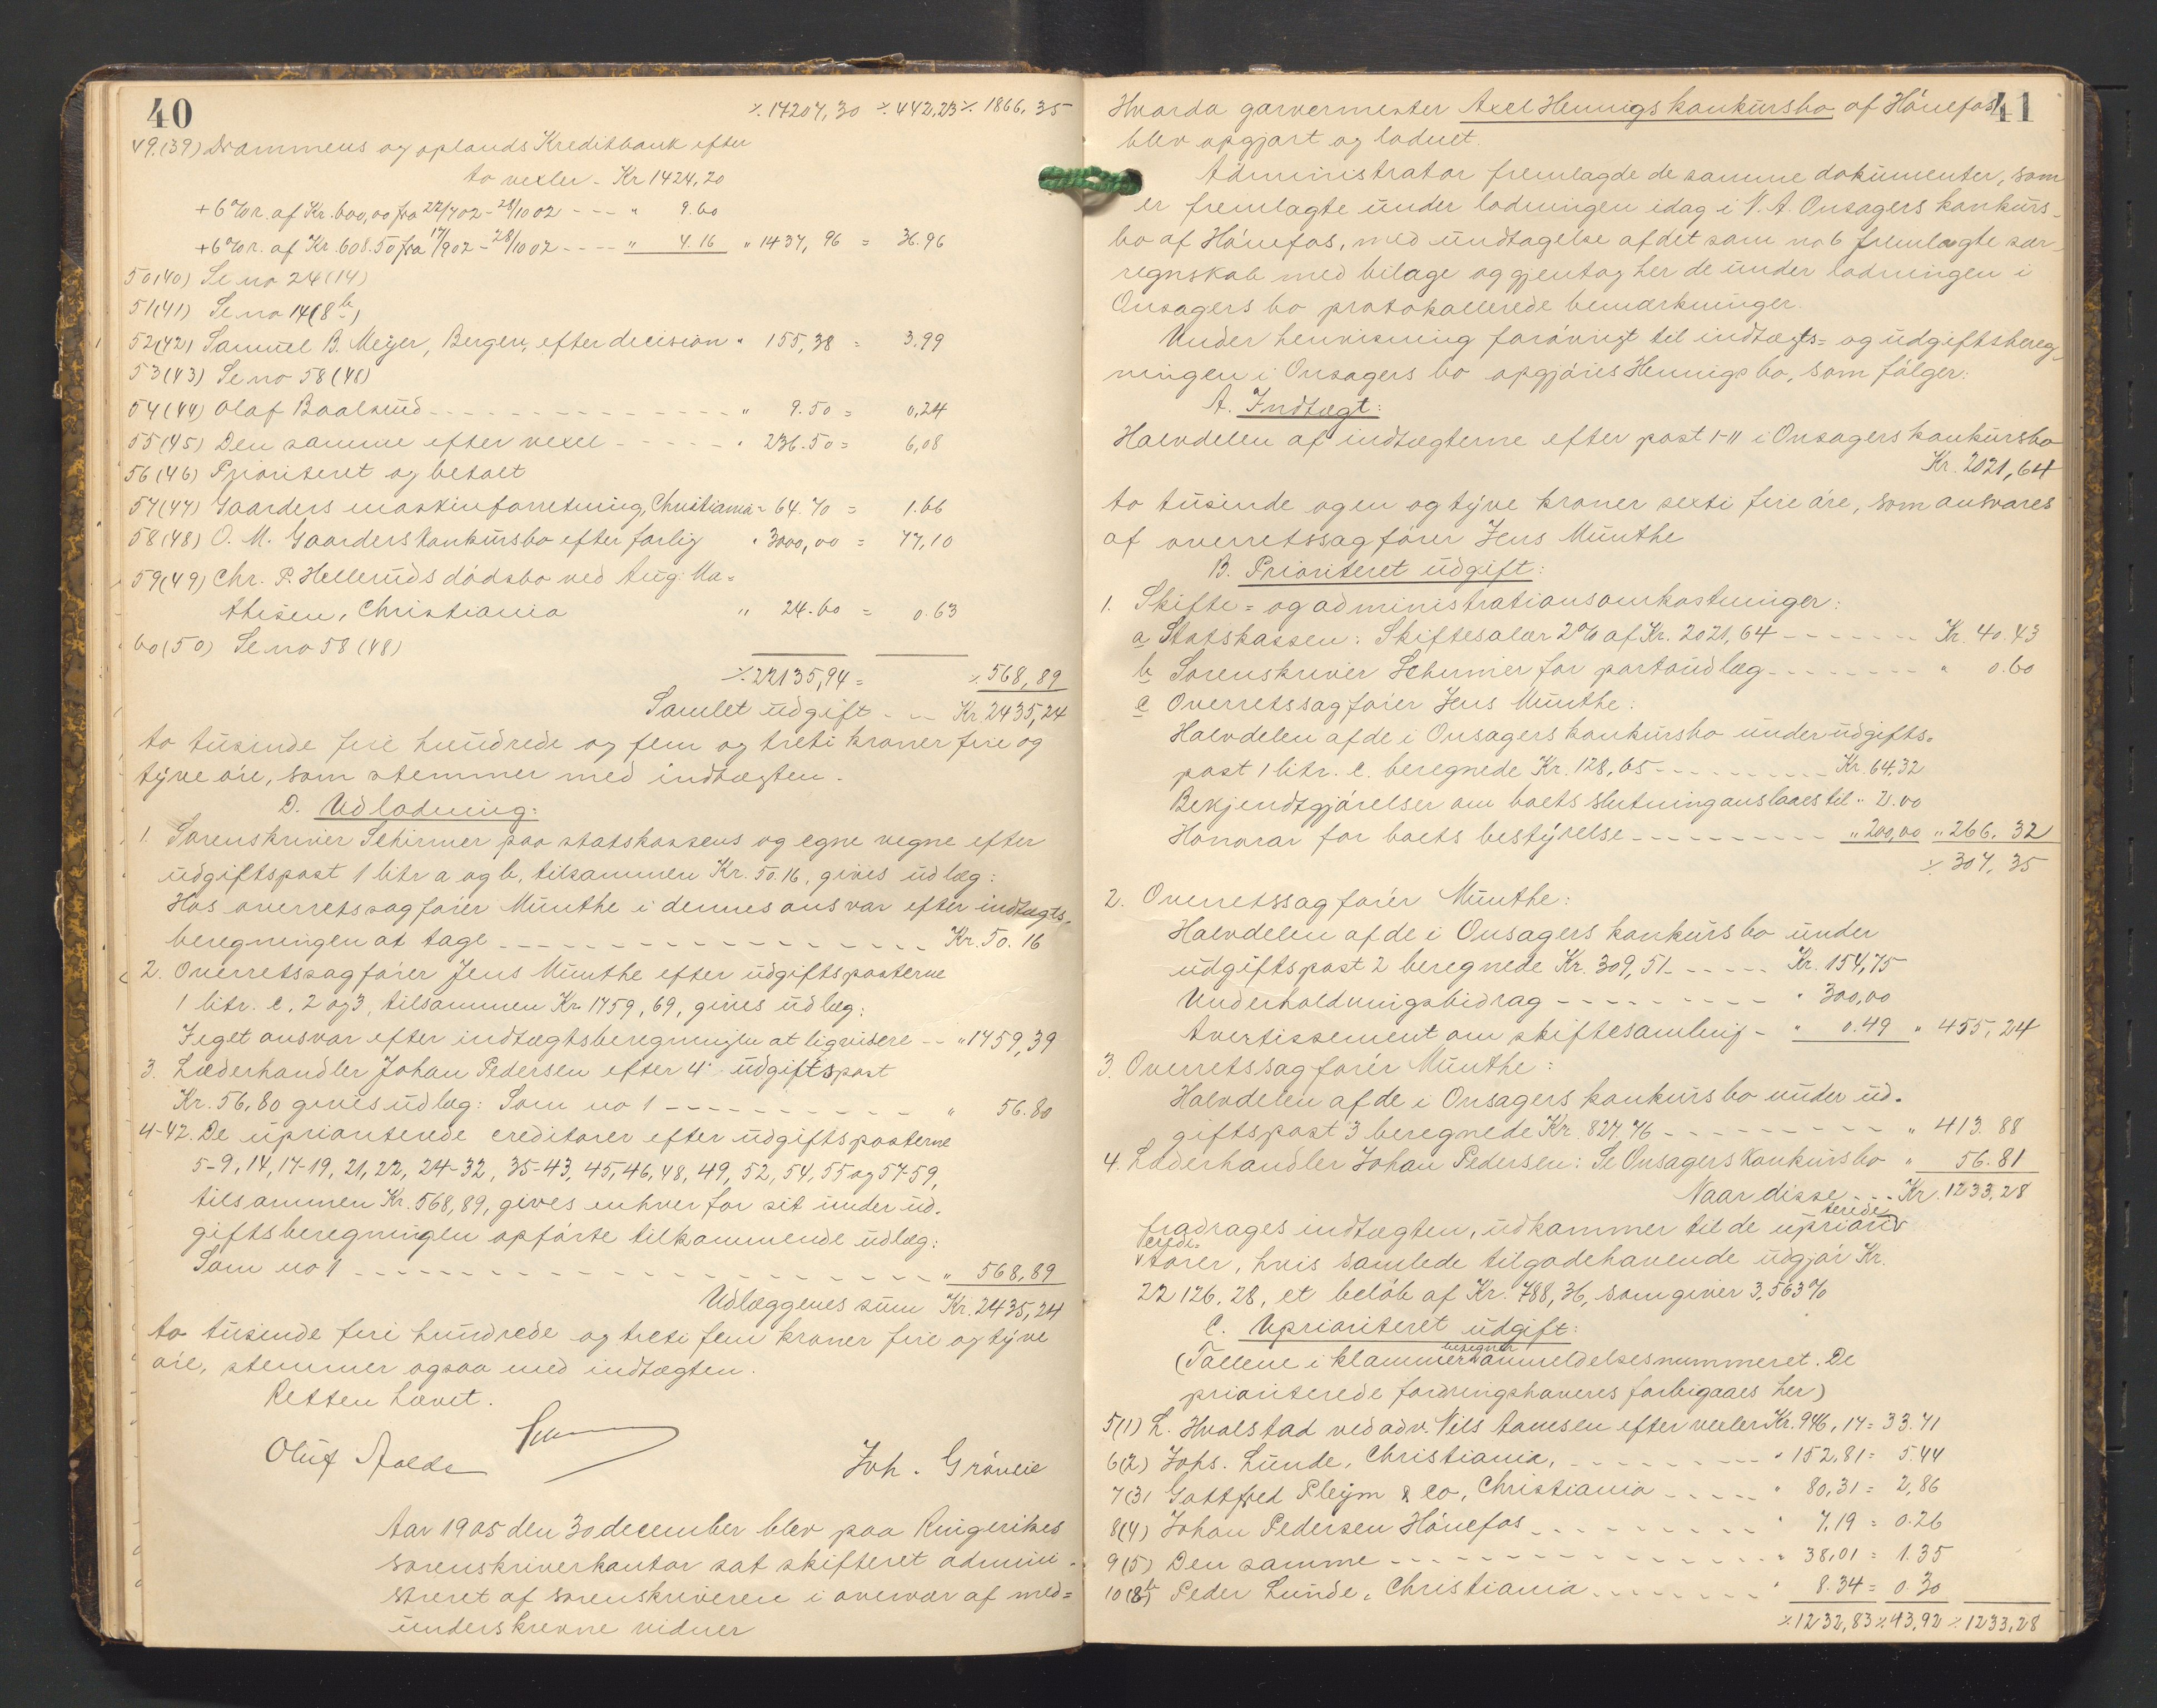 40
٪ 17207,30 ٪ 442,23 ٪ 1866,35
49.(39) Drammens og oplands Kreditbank efter
to vexler - Kr 1424,20
+ 6% r. af Kr. 600,00 fra 22/7 02 - 28/10 02 - - - " 9.60
+ 6% r. af Kr. 608.50 fra 17/9 02 - 28/10 02 - - - - " 4.16 " 1437,96 = 36.96
50(40) Se no 24(14)
51(41) Se no 14(8b)
52(42) Samuel B. Meyer, Bergen, efter decision " 155,38 = 3.99
53(43) Se no 58(48)
54(44) Olaf Baalsrud - - - - - - - - " 9.50 = 0,24
55(45) Den samme efter vexel - - - - - " 236.50 = 6,08
56(46) Prioriteret og betalt
57(47) Gaarders maskinforretning, Christiania " 64.70 = 1.66
58(48) O. M. Gaarders konkursbo efter forlig " 3000,00 = 77,10
59(49) Chr. P. Helleruds dödsbo ved Aug: Ma=
thisen, Christiania " 24.60 = 0.63
60(50) Se no 58(48)
٪ 22135,94 = ٪ 568,89
Samlet udgift - - - Kr. 2435,24
to tusinde fire hundrede og fem og treti kroner fire og
tyve øre, som stemmer med indtægten.
D. Udlodning:
1. Sorenskriver Schirmer paa statskassens og egne vegne efter
udgiftspost 1 litr a og b, tilsammen Kr. 50.16, gives udlæg:
Hos overretssagfører Munthe i dennes ansvar efter indtægts-
beregningen at tage - - - - - - - - - - - Kr. 50.16
2. Overretssagfører Jens Munthe efter udgiftsposterne
1 litr. c, 2 og 3, tilsammen Kr. 1759,69, gives udlæg:
I eget ansvar efter indtægtsberegningen at liqvidere - - " 1759,39
3. Læderhandler Johan Pedersen efter 4. udgiftspost
Kr. 56,80 gives udlæg: Som no 1 - - - - - - - - " 56.80
4-42. De uprioriterede creditorer efter udgiftsposterne
5-9, 14, 17-19, 21, 22, 24-32, 35-43, 45, 46, 48, 49, 52, 54, 55 og 57-59,
tilsammen Kr. 568,89, gives enhver for sit under ud-
giftsberegningen opførte tilkommende udlæg:
Som no 1 - - - - - - - - - - - - - - - " 568,89
Udlæggenes sum Kr. 2435,24
to tusinde fire hundrede og treti fem kroner fire og tyve
øre, stemmer ogsaa med indtægten.
Retten hævet.
Joh. Grönlie
Aar 1905 den 30 december blev paa Ringerikes
sorenskriverkontor sat skifteret admini-
streret af sorenskriveren i overvær af med=
underskrevne vidner
41
Hvorda garvermester Axel Hennigs konkursbo af Hönefos
blev opgjort og lodnet.
Administrator fremlagde de samme dokumenter, som
er fremlagte under lodningen idag i N. A. Onsagers konkurs-
bo af Hönefos, med undtagelse af det som no 6 fremlagte sær-
regnskab med bilage og gjentog her de under lodningen i
Onsagers bo protokollerede bemærkninger.
Under henvisning forövrigt til indtægts= og udgiftsbereg-
ningen i Onsagers bo opgjöres Hennigs bo, som fölger:
A. Indtægt:
Halvdelen af indtægterne efter post 1-11 i Onsagers konkursbo
Kr. 2021,64
to tusinde og en og tyve kroner sexti fire øre, som ansvares
af overretssagfører Jens Munthe
B. Prioriteret udgift:
1. Skifte= og administrationsomkostninger:
a Statskassen: Skiftesalær 2% af Kr. 2021,64 - - - - - - - Kr. 40.43
b Sorenskriver Schirmer for portoudlæg - - - - - - - - " 0.60
c Overretssagfører Jens Munthe:
Halvdelen af de i Onsagers konkursbo under udgifts-
post 1 litr. c. beregnede Kr. 128,65 - - - - - - - - Kr. 64.32
Bekjendtgjörelser om boets slutning anslaaes til " 2.00
Honorar for boets bestyrelse - - - - - - - - - " 200,00 " 266.32
٪ 307,35
2. Overretssagfører Munthe:
Halvdelen af de i Onsagers konkursbo under
udgiftspost 2 beregnede Kr. 309,51 - - - - - Kr. 154,75
Underholdningsbidrag - - - - - - - - " 300,00
Avertissement om skiftesamling - " 0.49 " 455,24
3. Overretssagfører Munthe:
Halvdelen af de i Onsagers konkursbo under ud-
giftspost 3 beregnede Kr. 827,76 - - - - - - - - - " 413.88
4. Læderhandler Johan Pedersen: Se Onsagers konkursbo " 56.81
Naar disse - - - Kr. 1233,28
fradrages indtægten, udkommer til de upriori v terede
v credi- torer, hvis samlede tilgodehavende udgjör Kr.
22126,28, et belöb af Kr. 788,36, som giver 3,563%
C. Uprioriteret udgift:
(Tallene i klammer betegner anmeldelsesnummeret. De
prioriterede fordringshaveres forbigaaes her)
5(1) L. Hvalstad ved adv. Nils Aamsen efter vexler Kr. 946,17 = 33.71
6(2) Johs. Lunde, Christiania, - - - - - - - - " 152,81 = 5.44
7(3) Gottfred Pleym & Co, Christiania - - - - - " 80,31 = 2,86
8(4) Johan Pedersen Hönefos - - - - - - - - - " 7,19 = 0.26
9(5) Den samme - - - - - - - - - - - - - - " 38,01 = 1.35
10(8b) Peder Lunde, Christiania - - - - - - - " 8.34 = 0.30
٪ 1232,83 ٪ 43,92 ٪ 1233,28